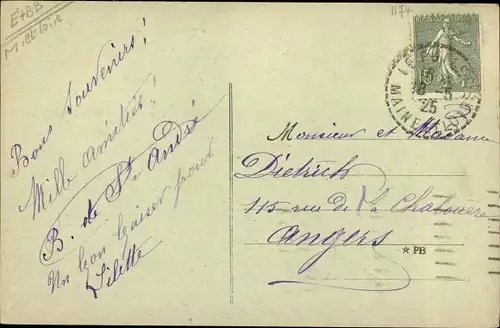 E+BB
M. et Loire
1174
Bons souvenirs!
Mille amitiés!
B. de St. André
Un bon baiser pour
Lilette
13
8-3
25
MAINE
Monsieur et Madame
Dietrich
115 rue de la Chalouère
Angers
★ PB